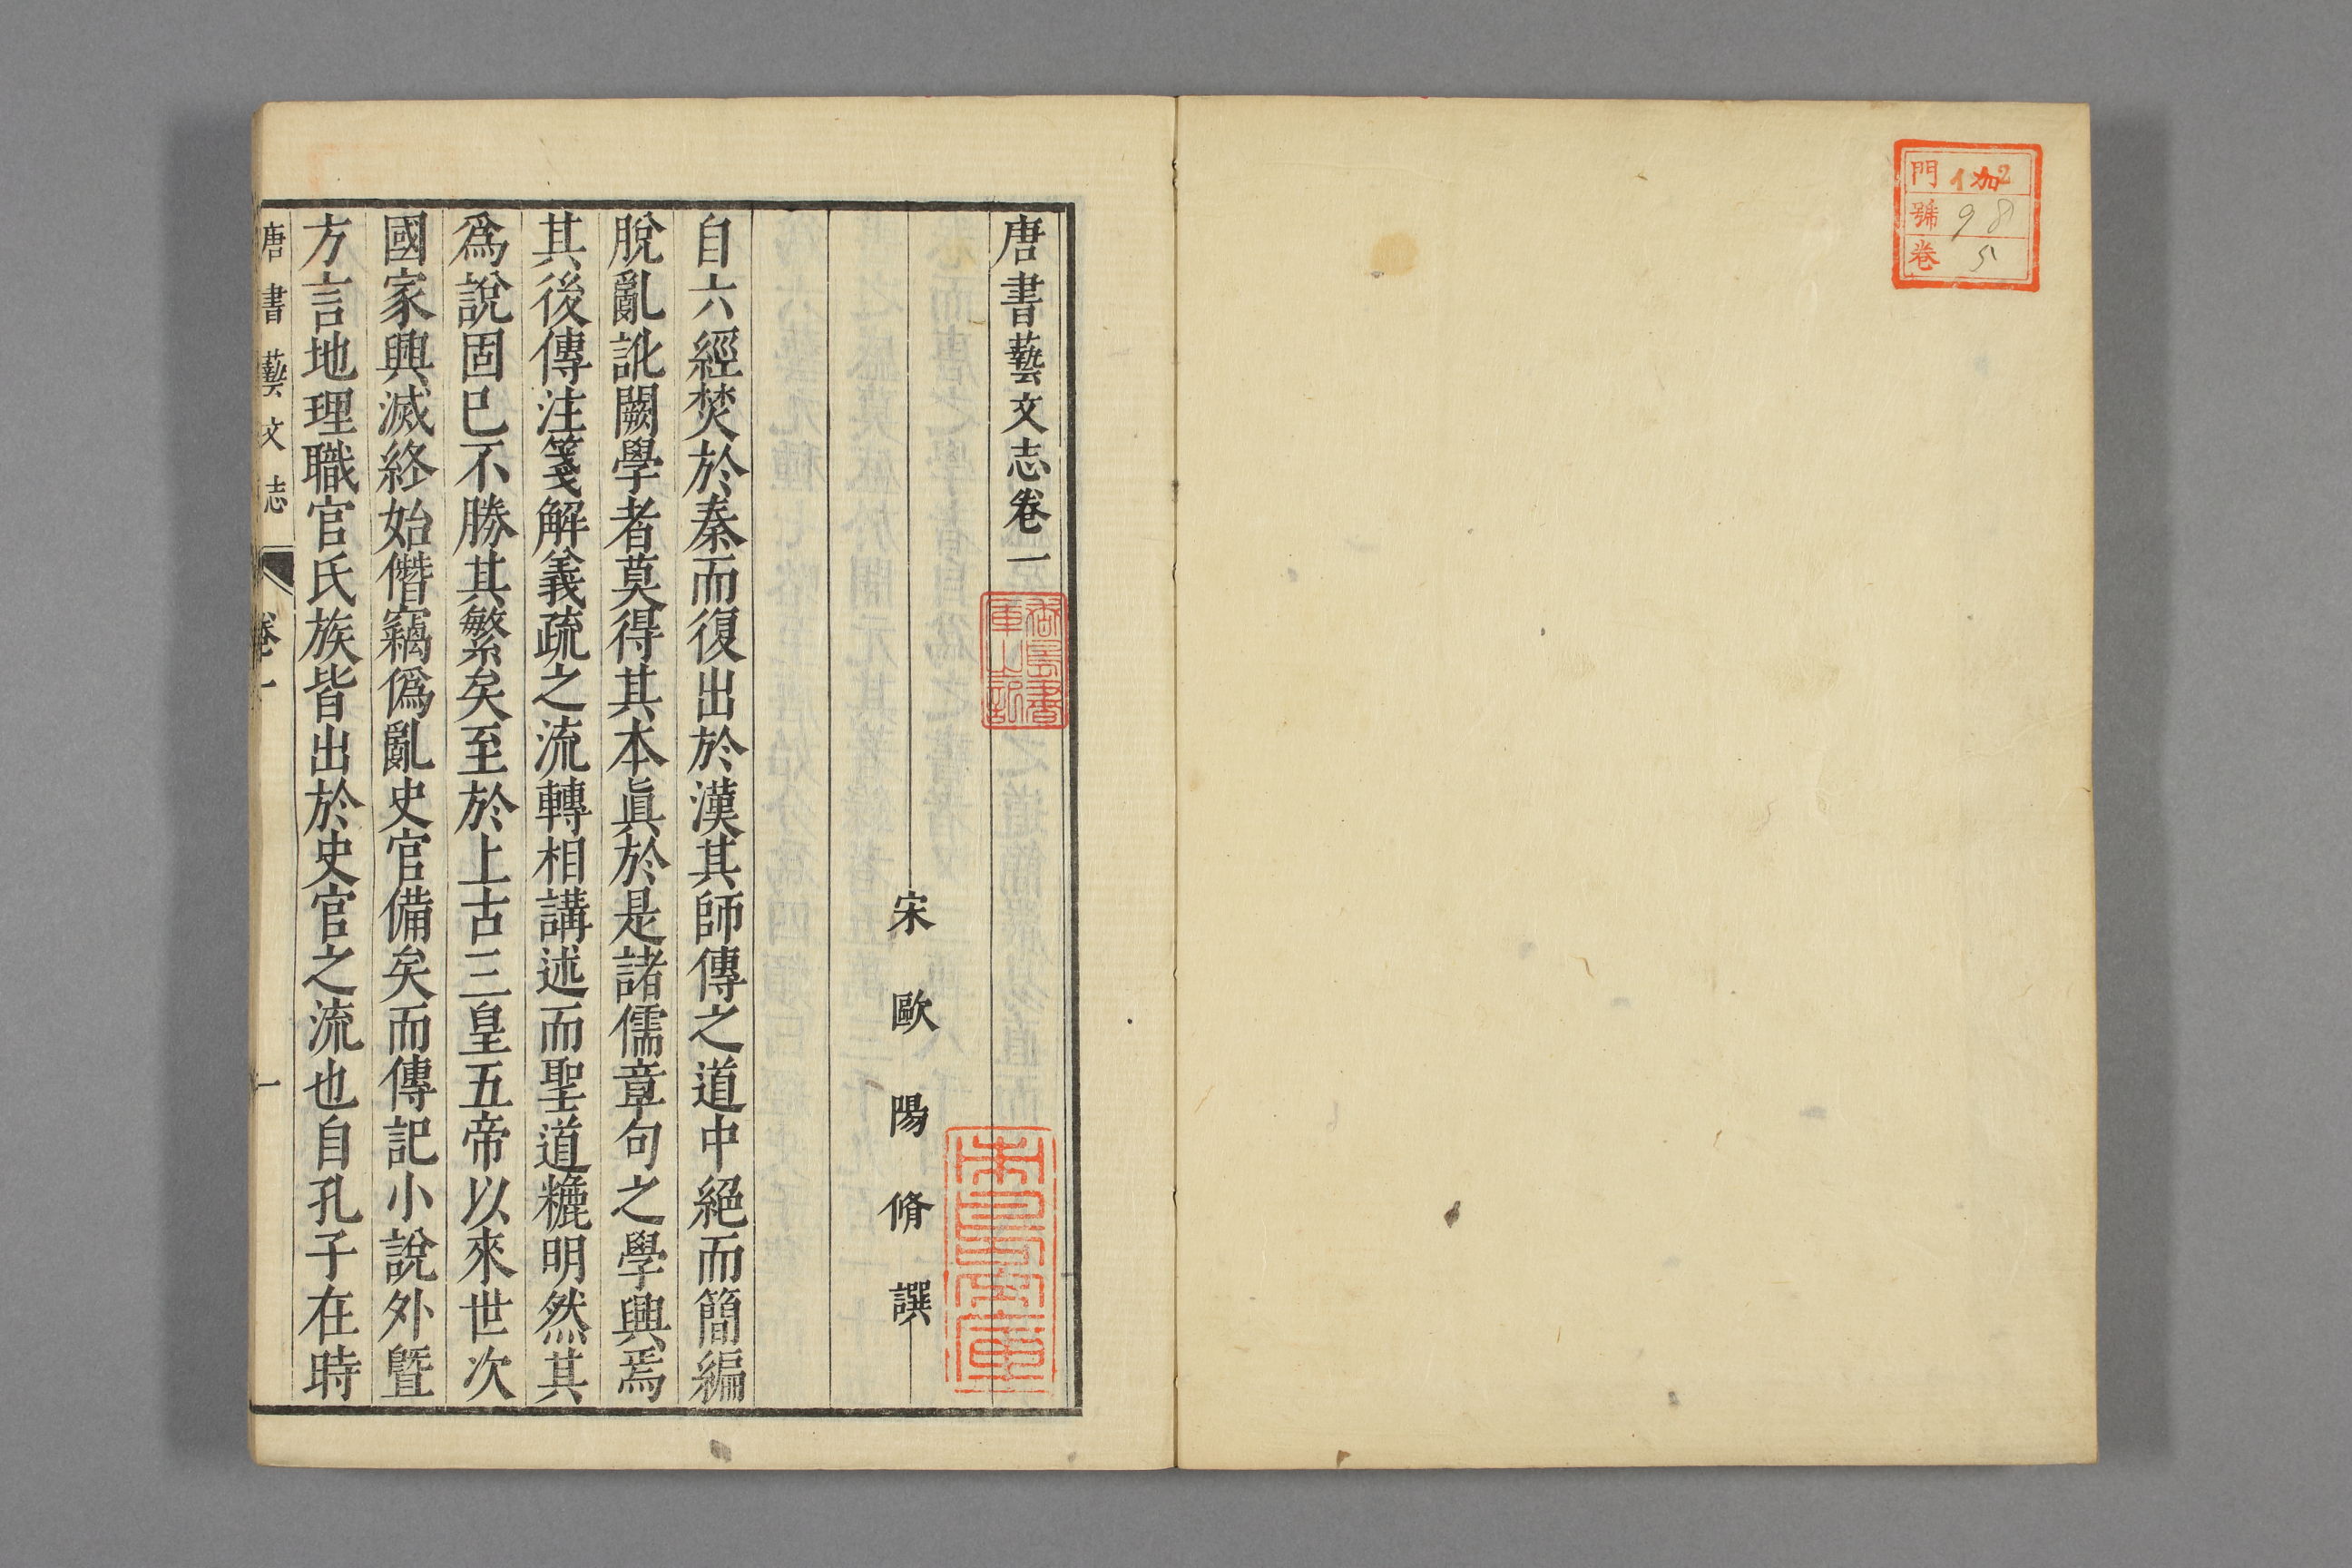 門 イ 加2
號 98
卷 5
唐書藝文志卷一
宋歐陽脩譔
自六經焚於秦而復出於漢其師傳之道中絕而簡編
脫亂訛闕學者莫得其本眞於是諸儒章句之學興焉
其後傳注箋解義疏之流轉相講述而聖道麤明然其
爲說固已不勝其繁矣至於上古三皇五帝以來世次
國家興滅終始僭竊僞亂史官備矣而傳記小說外曁
方言地理職官氏族皆出於史官之流也自孔子在時
唐書藝文志 卷一 一